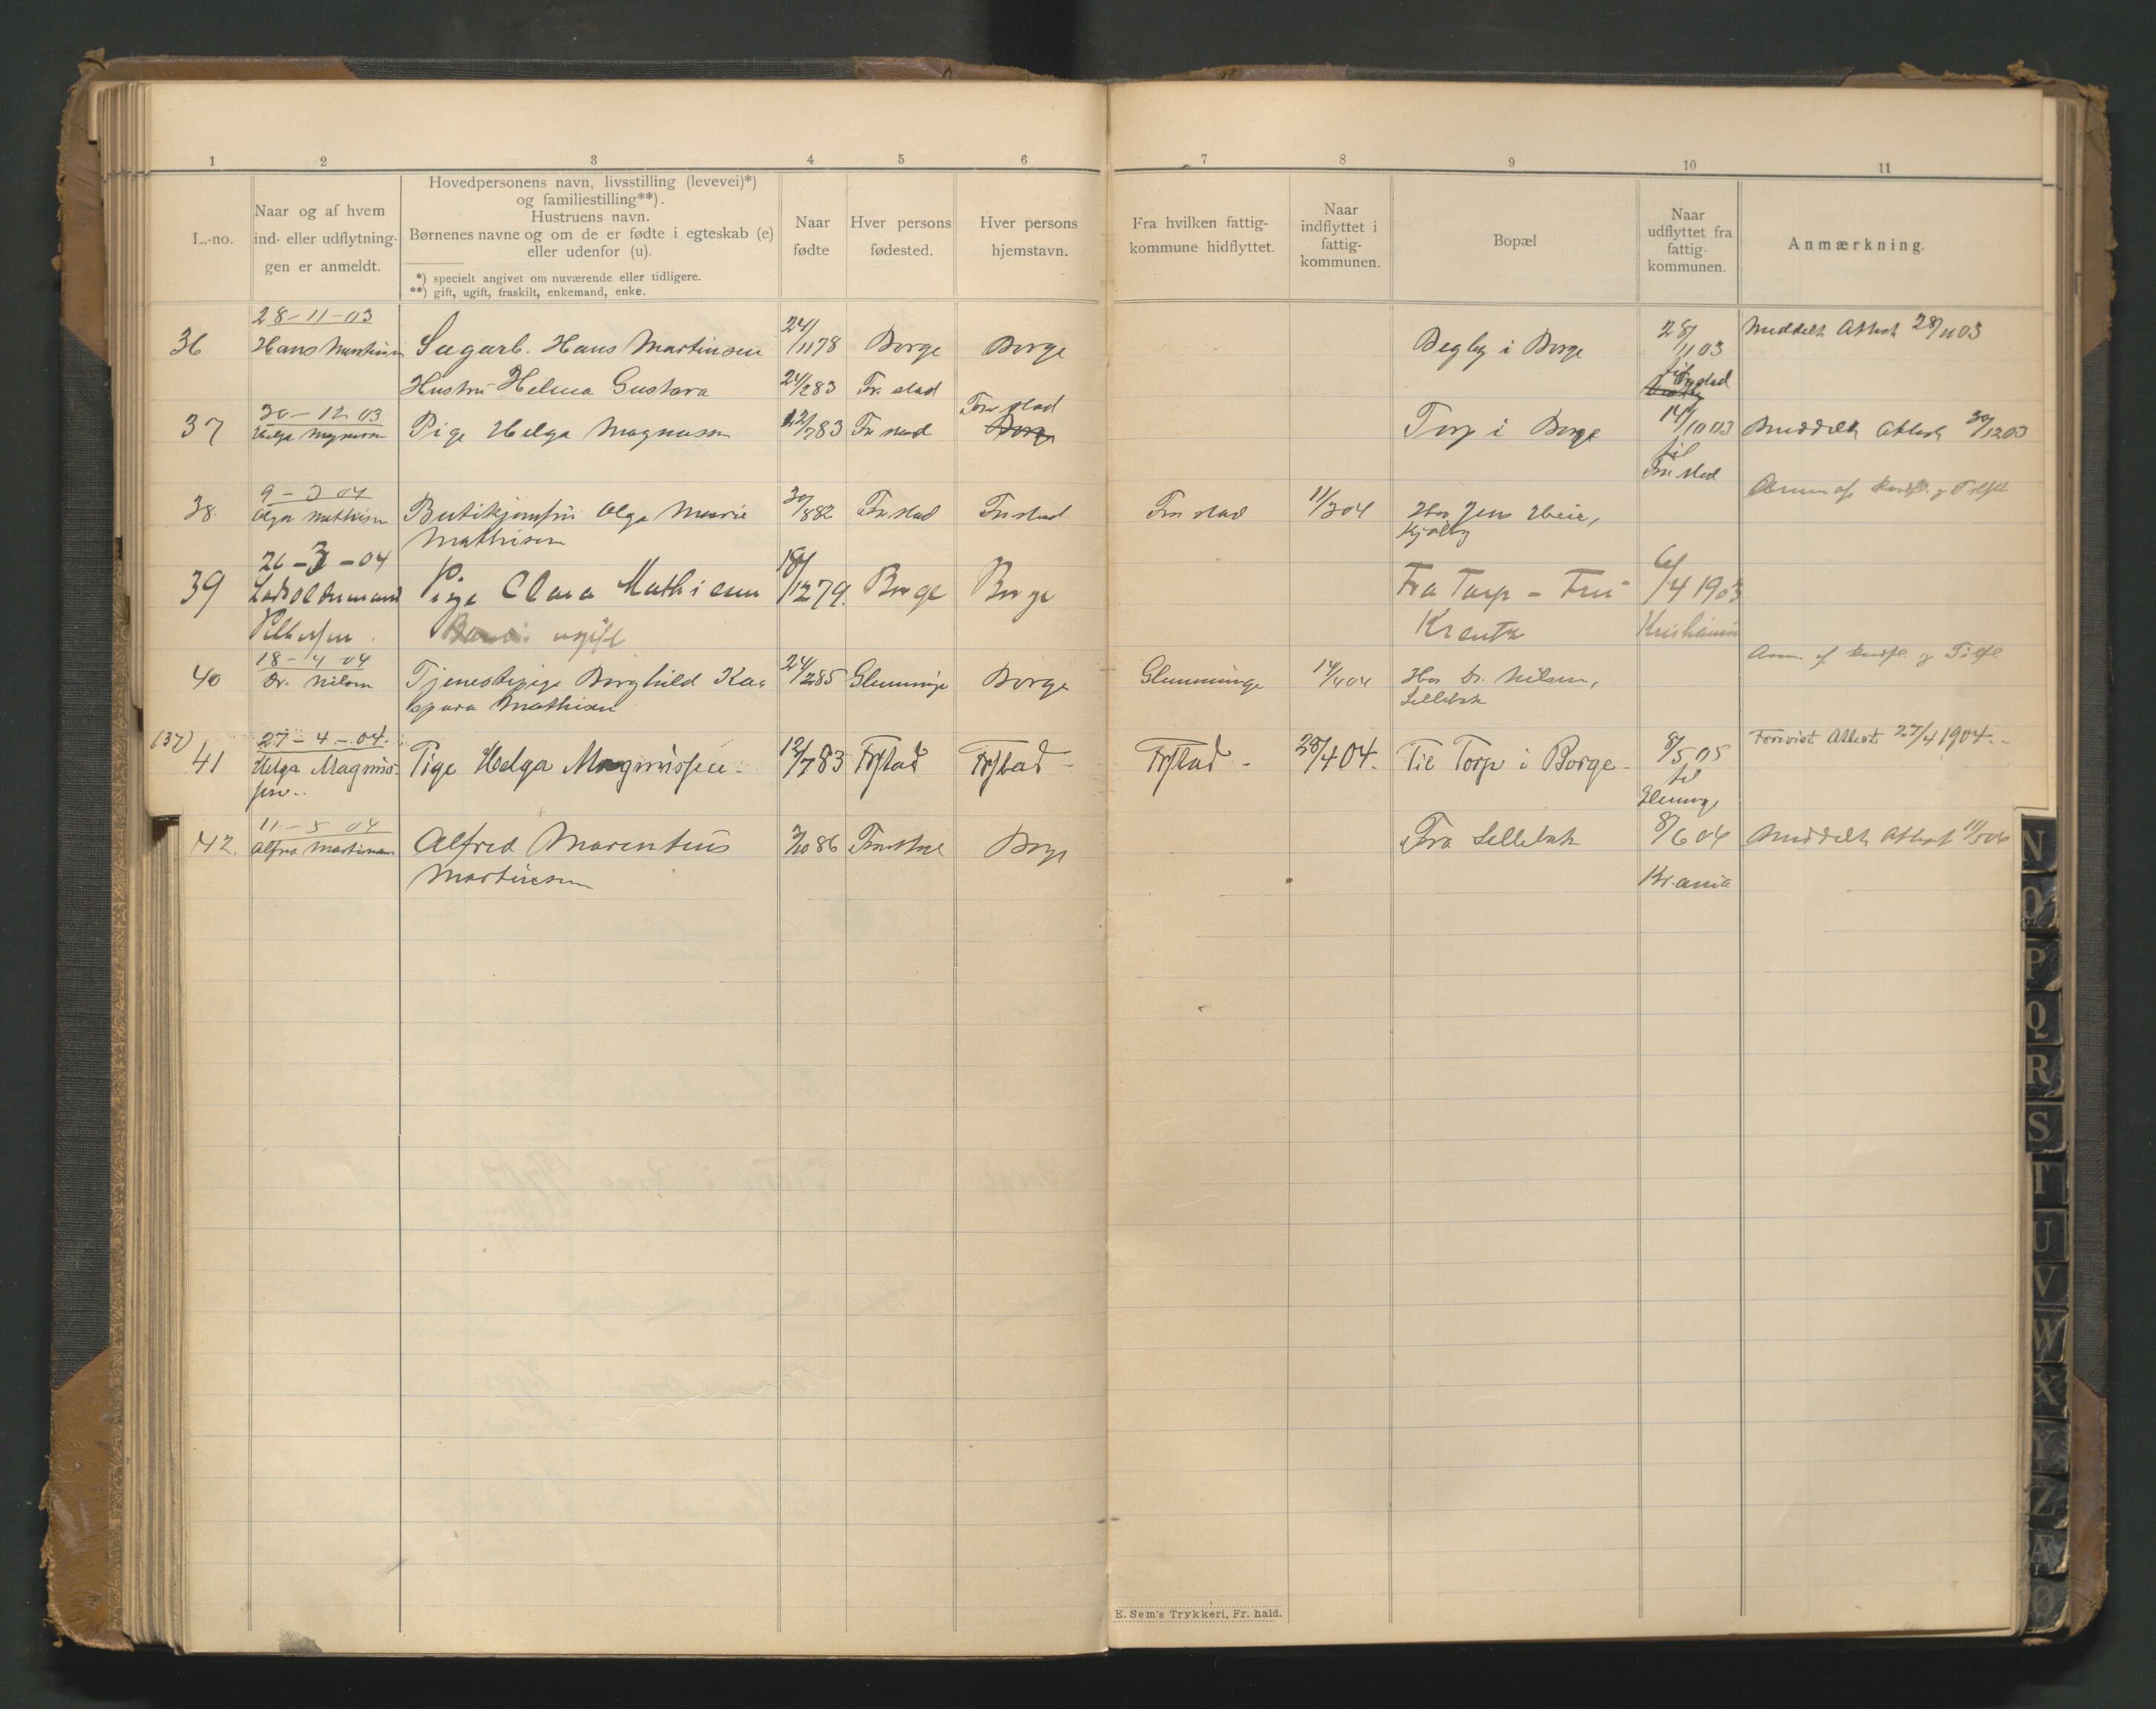 1 2 3 4 5 6 7 8 9 10 11
L.-no.
Naar og af hvem
ind- eller udflytnin-
gen er anmeldt.
Hovedpersonens navn, livsstilling (levevei)*)
og familiestilling**).
Hustruens navn.
Børnenes navne og om de er fødte i egteskab (e)
eller udenfor (u).
*) specielt angivet om nuværende eller tidligere.
**) gift, ugift, fraskilt, enkemand, enke.
Naar
fødte
Hver persons
fødested.
Hver persons
hjemstavn.
Fra hvilken fattig-
kommune hidflyttet.
Naar
indflyttet i
fattig-
kommunen.
Bopæl
Naar
udflyttet fra
fattig-
kommunen.
Anmærkning.
28-11-03
36 Hans Martinsen Sagarb. Hans Martinsen 24/11 78 Borge Borge Begby i Borge 28/11 03 Meddelt Attest 28/11 03
Hustru Helma Gustava 24/2 83 Fr.stad til Fr.stad
30-12 03 Fr.stad
37 Helga Magnussen Pige Helga Magnussen 12/7 83 Fr.stad Borge Torp i Borge 14/10 03 Meddelt Attest 30/12 03
til
Fr.stad
9-3 04
38. Olga Mathisen Butikjomfru Olga Marie 30/8 82 Fr.stad Fr.stad Fr.stad 11/3 04 Hos Jens Heie,
Mathisen Kjølby
26-3-04
39 Pige Clara Mathisen 18/12 79. Borge Borge Fra Torp - 6/4 1903
ugift Kristiania
18-4 04
40 Dr. Nilsen Tjenestepige Borghild Ka- 24/2 85 Glemminge Borge Glemminge 14/4 04 Hos Dr. Nilsen,
spara Mathisen Lillebæk
(37) 27-4-04.
41 Helga Magnus- Pige Helga Magnussen - 12/7 83 Frstad Frstad - Frstad - 28/4 04. Til Torp i Borge - 8/5 05 Forevist Attest 27/4 1904. -
sen.. til
Glemminge
11-5 04
42. Alfred Martinsen Alfred Marentius 3/10 86 Fr.stad Borge Fra Lillebæk 8/6 04 Meddelt Attest 11/5 04
Martinsen Kr.ania
E. Sem's Trykkeri, Fr. hald.
N
O
P
Q
R
S
T
U
V
W
X
Y
Z
Ø